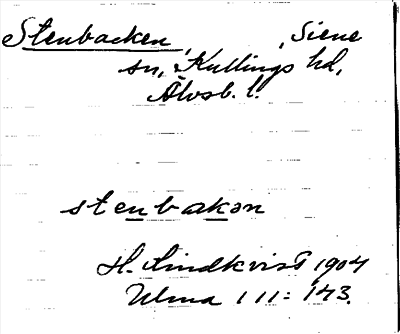 Stenbacken, , Siene
sn, Kullings hd,
Älvsb. l.
stenbakən
H. Lindkvist 1904
Ulma 111: 143.